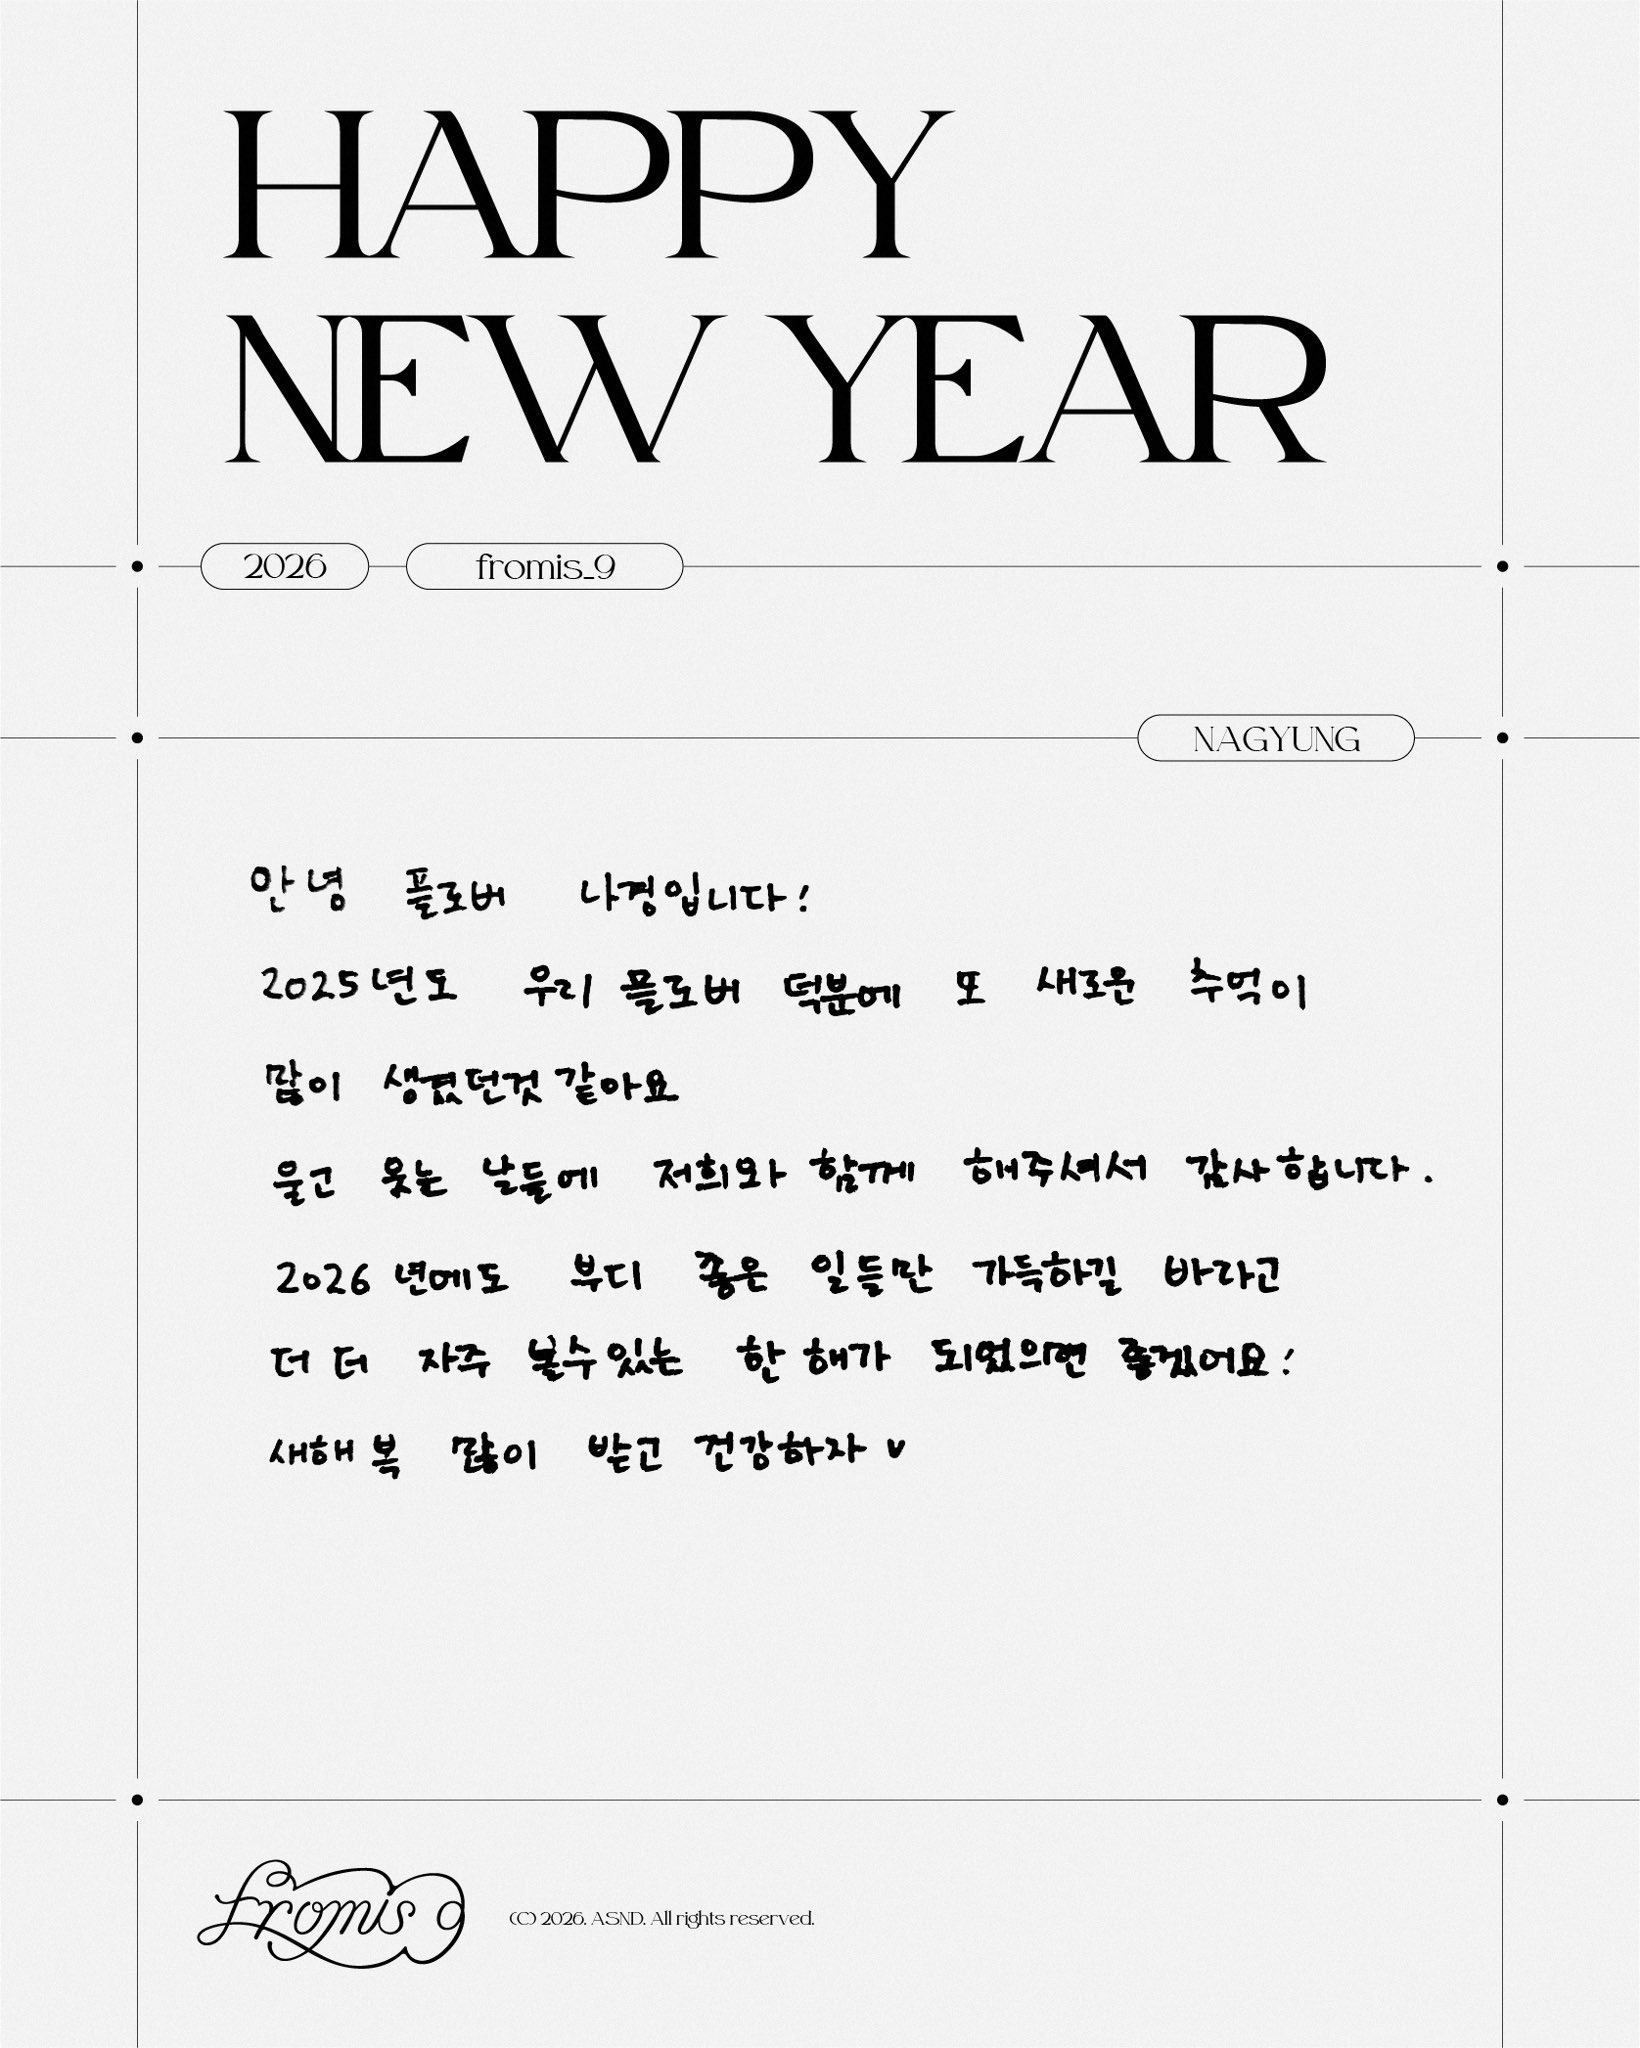 HAPPY
NEW YEAR
2026 fromis_9
NAGYUNG
안녕 플로버 나경입니다!
2025년도 우리 플로버 덕분에 또 새로운 추억이
많이 생겼던것 같아요
울고 웃는 날들에 저희와 함께 해주셔서 감사합니다.
2026년에도 부디 좋은 일들만 가득하길 바라고
더 더 자주 볼수있는 한 해가 되었으면 좋겠어요!
새해 복 많이 받고 건강하자 v
fromis 9
(C) 2026. ASND. All rights reserved.